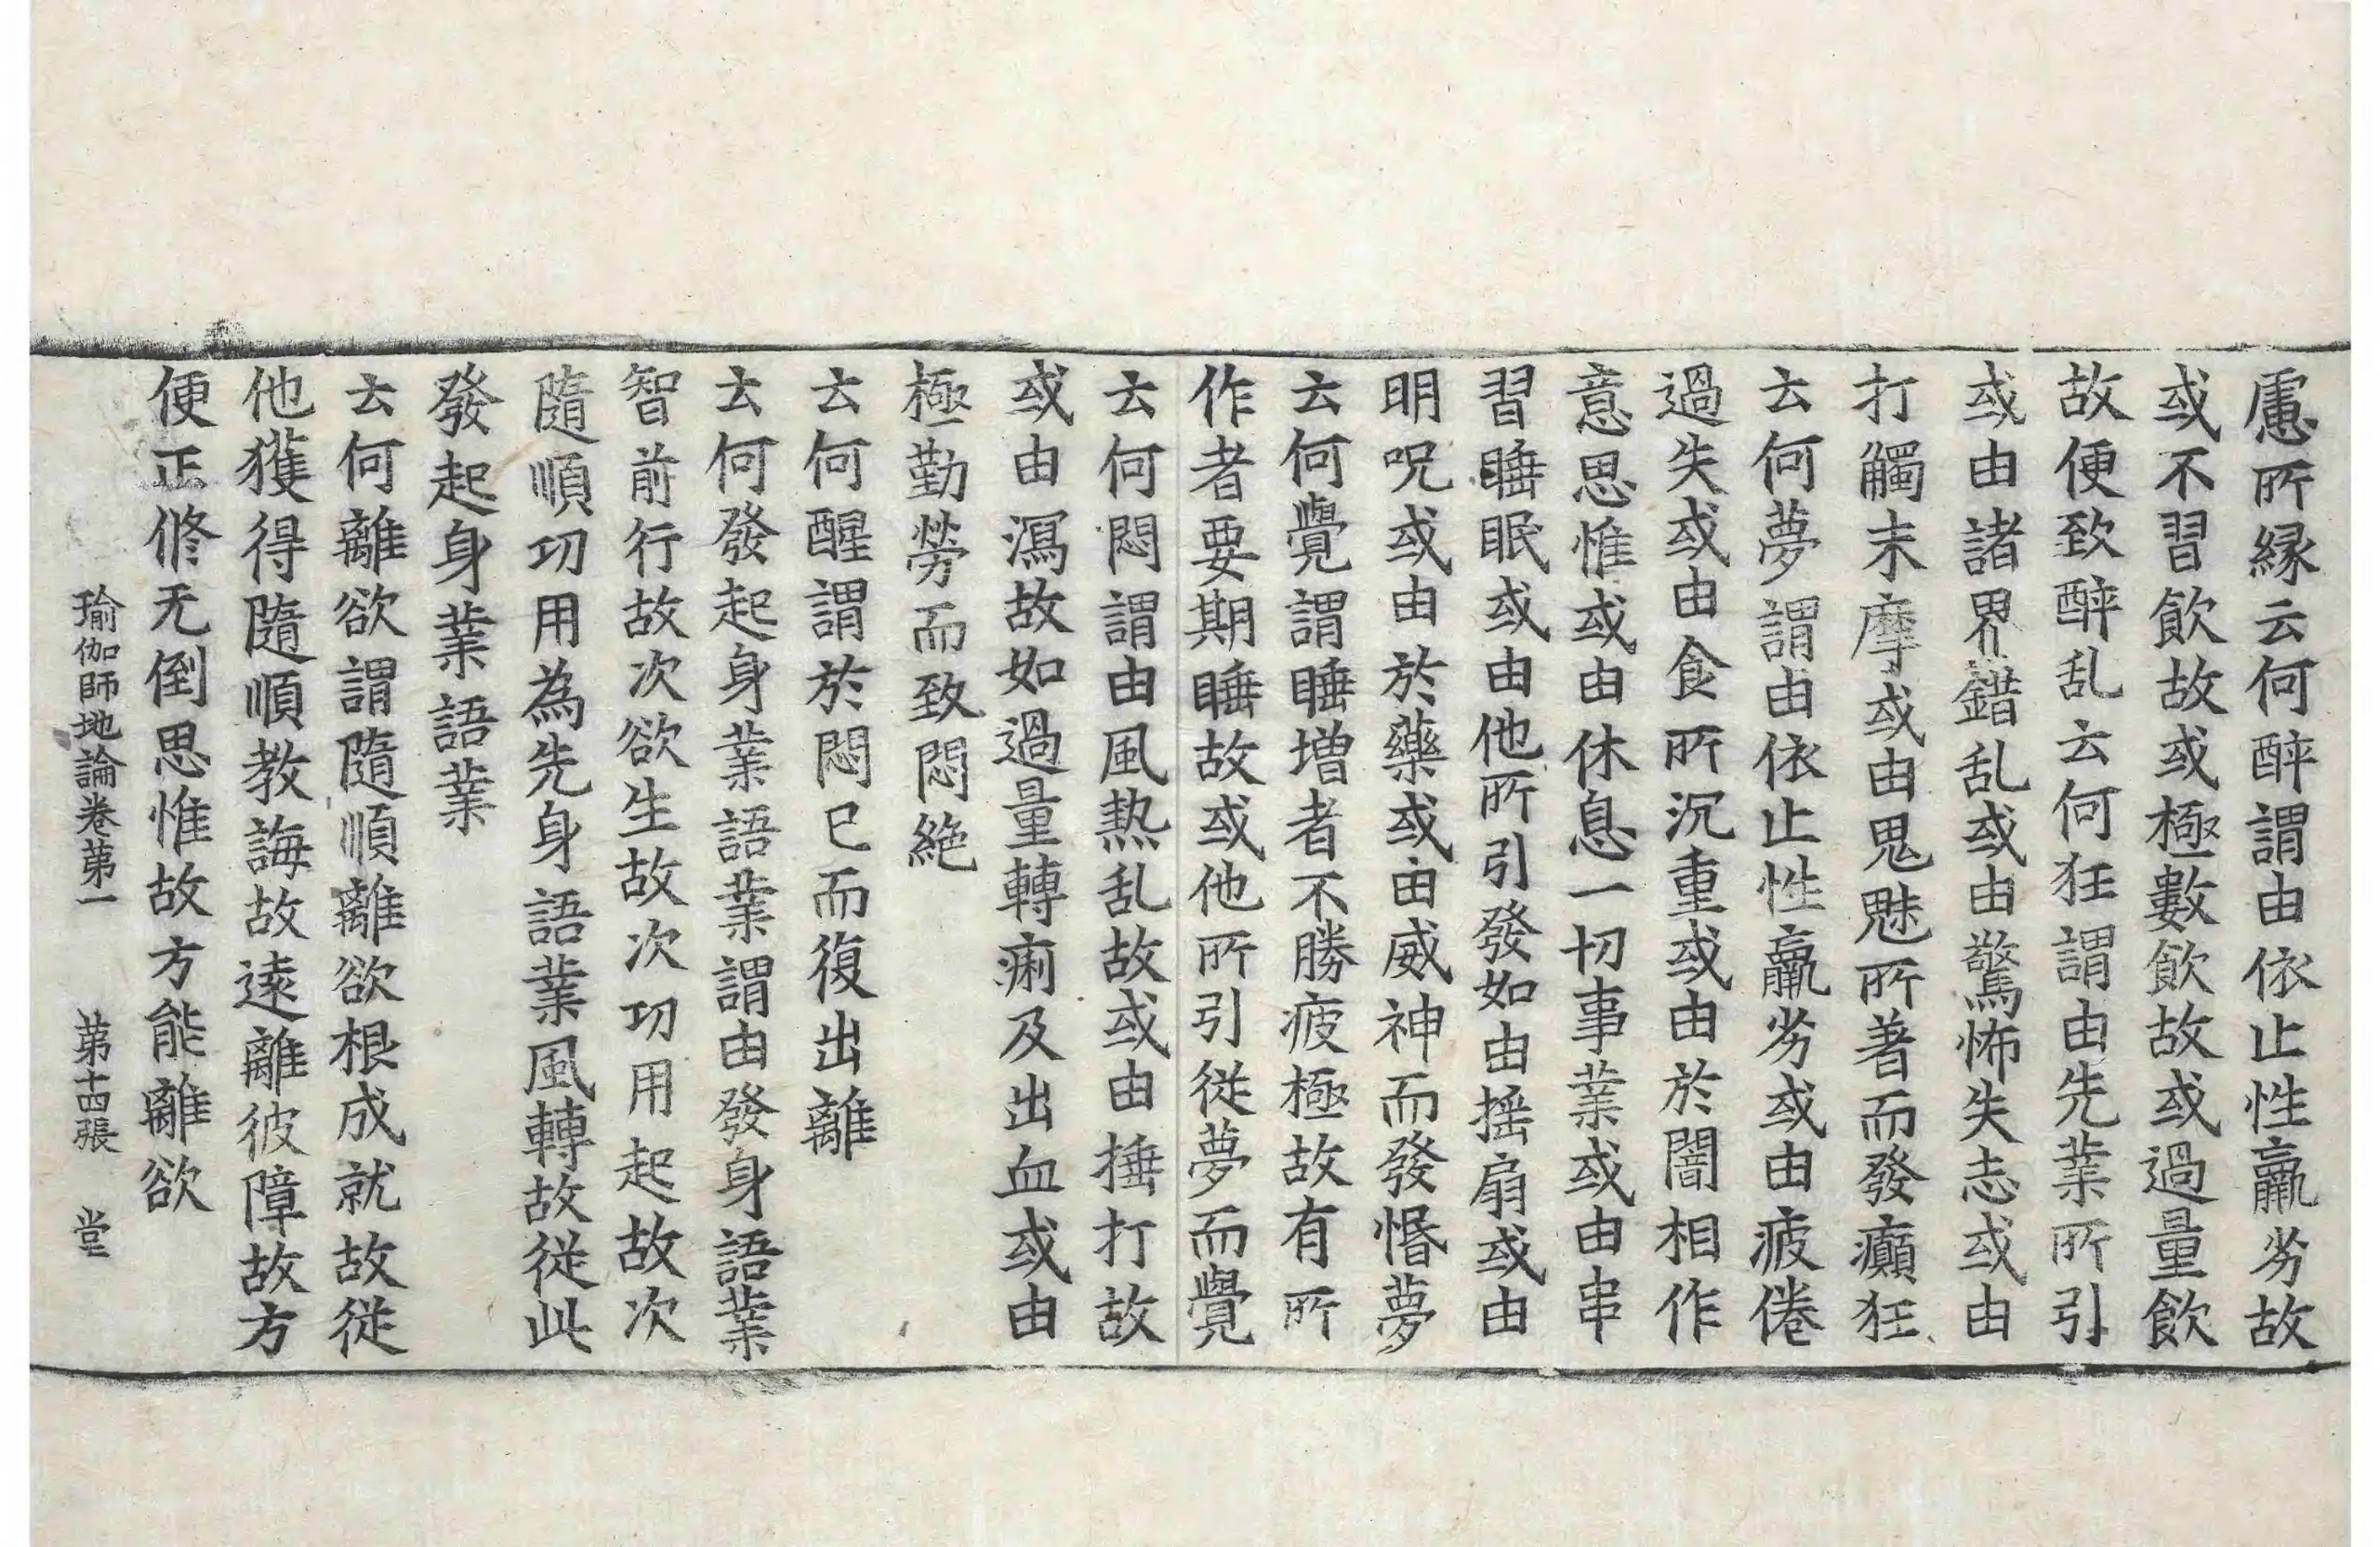 慮所縁云何醉謂由依止性羸劣故
或不習飲故或極數飲故或過量飲
故便致醉乱云何狂謂由先業所引
或由諸界錯乱或由驚怖失志或由
打觸末摩或由鬼魅所著而發癲狂
云何夢謂由依止性羸劣或由疲倦
過失或由食所沉重或由於闇相作
意思惟或由休息一切事業或由串
習睡眠或由他所引發如由揺扇或由
明呪或由於藥或由威神而發惛夢
云何覺謂睡増者不勝疲極故有所
作者要期睡故或他所引從夢而覺
云何悶謂由風熱乱故或由捶打故
或由瀉故如過量轉痢及出血或由
極勤勞而致悶絶
云何醒謂於悶已而復出離
云何發起身業語業謂由發身語業
智前行故次欲生故次功用起故次
隨順功用為先身語業風轉故從此
發起身業語業
云何離欲謂隨順離欲根成就故從
他獲得隨順教誨故遠離彼障故方
便正修无倒思惟故方能離欲
瑜伽師地論卷第一 第十四張 堂